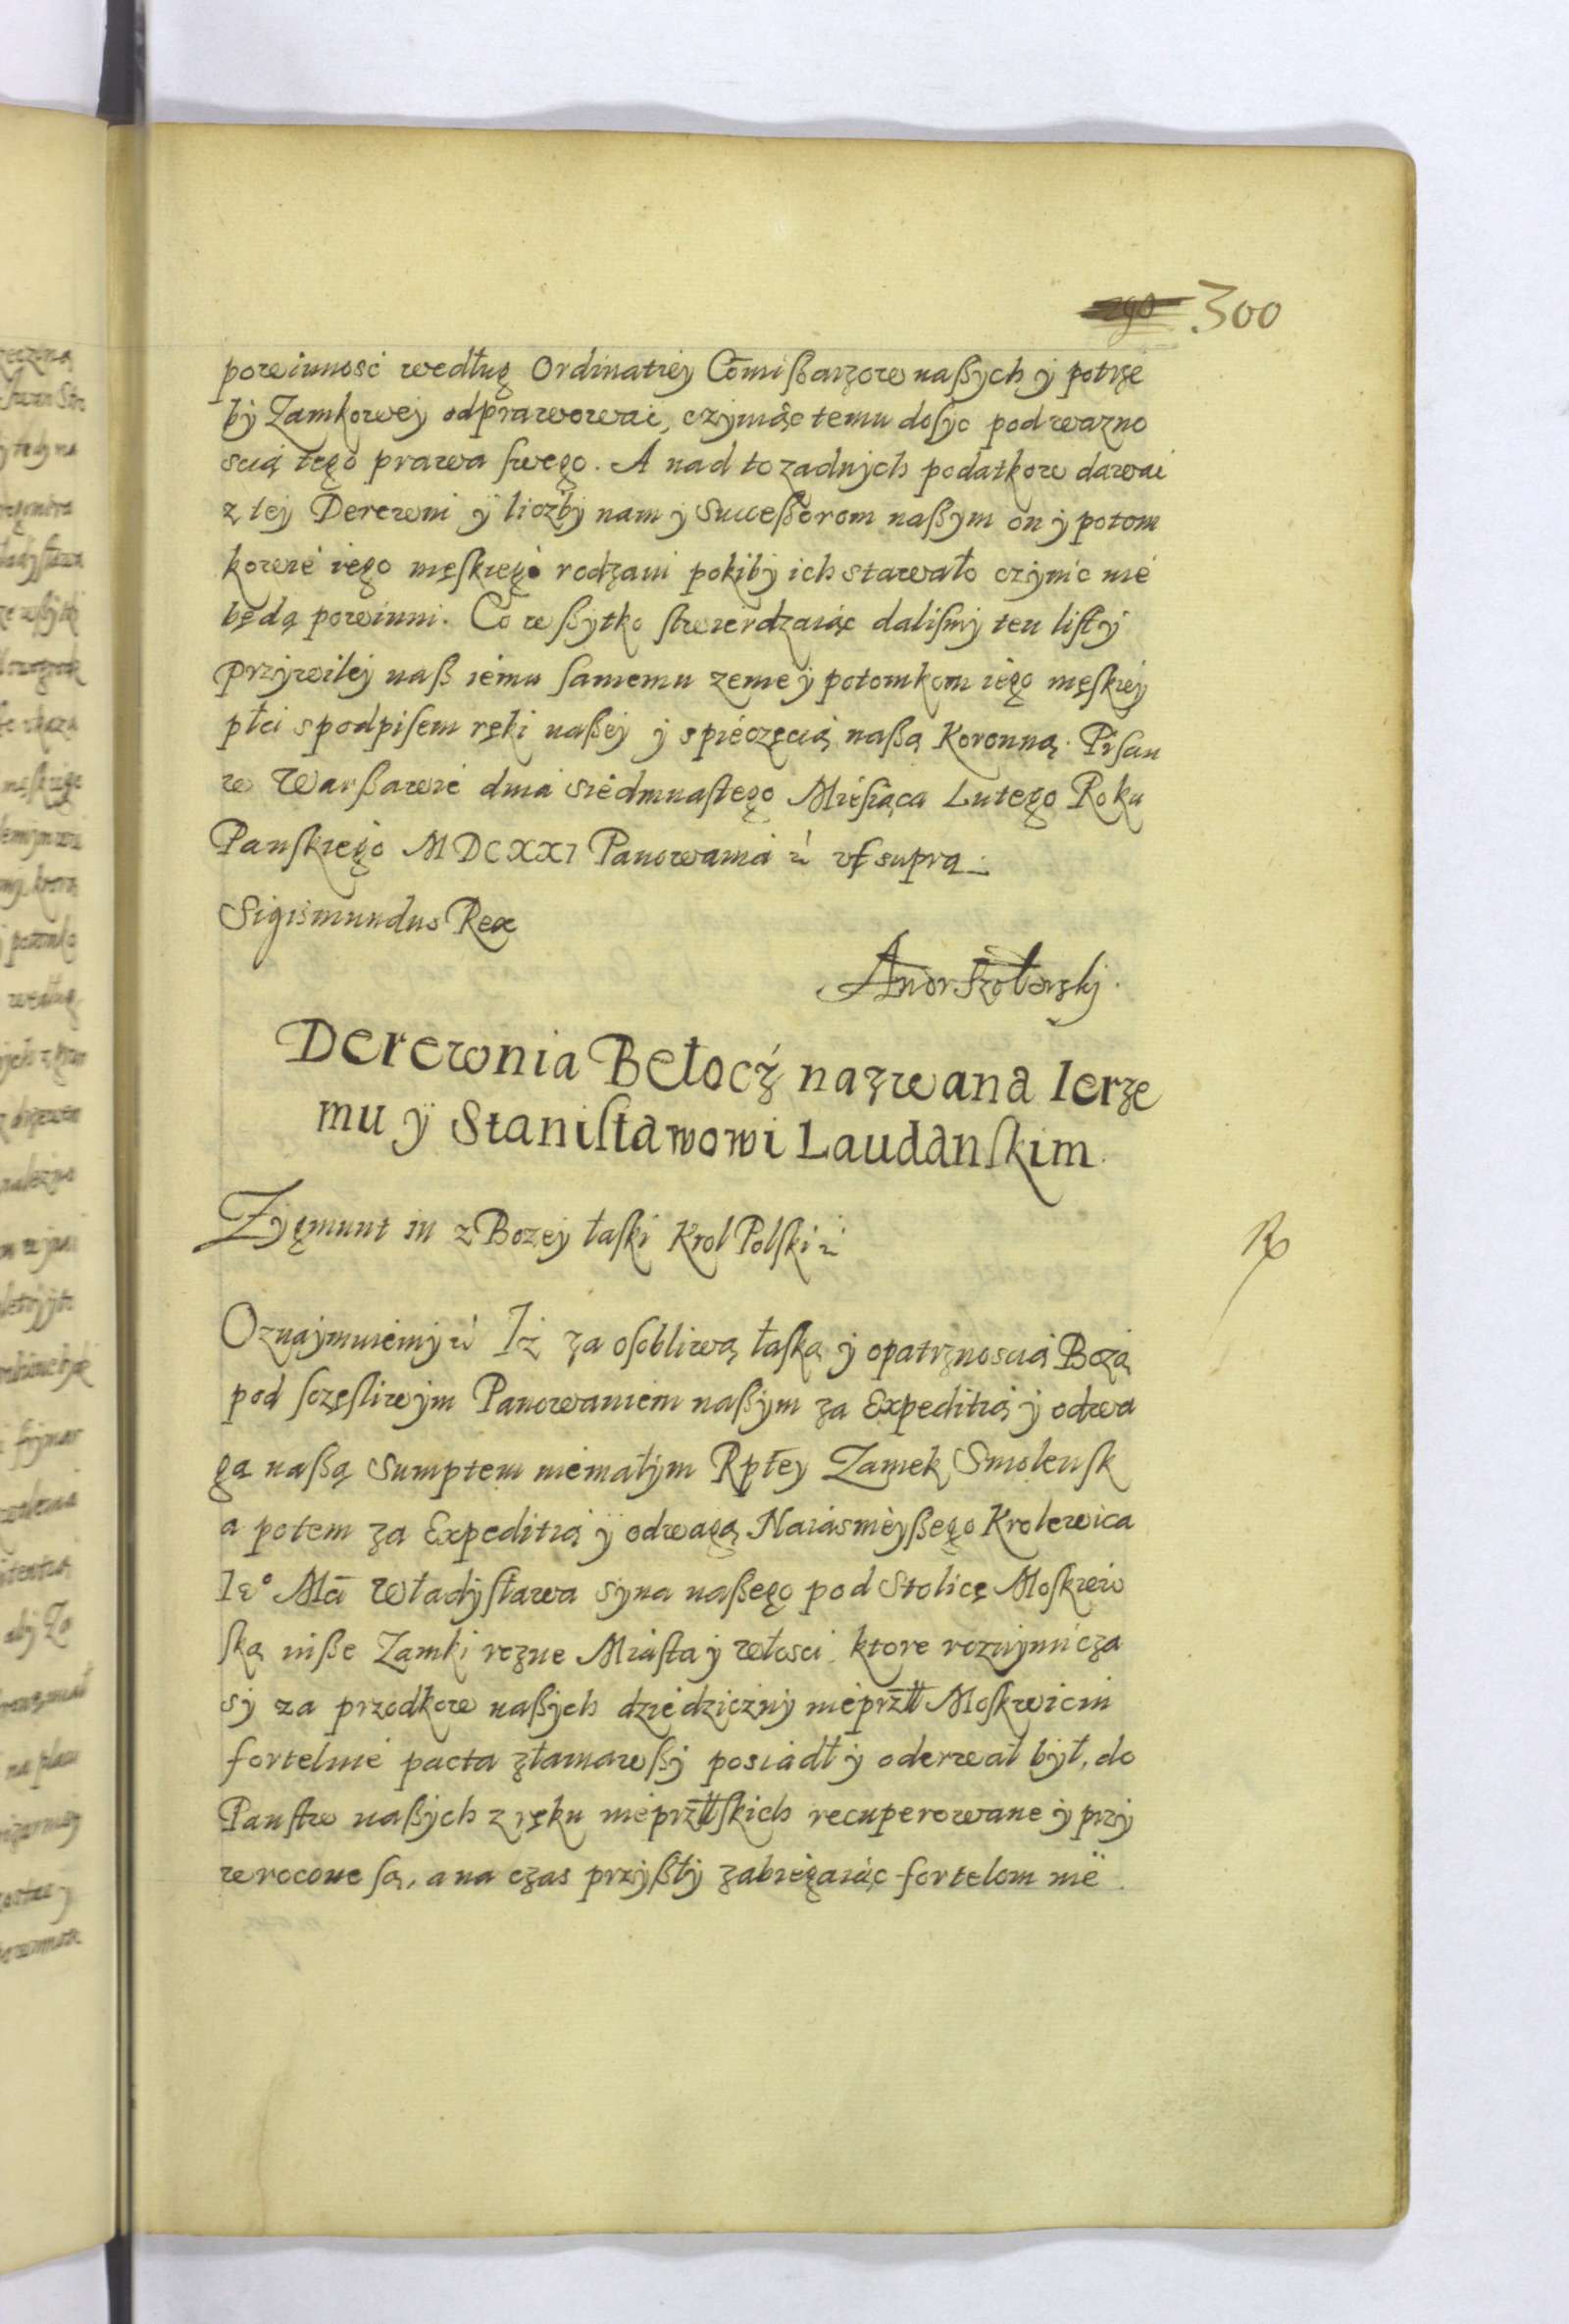 300
powinnosć według Ordinatiey Comißarzow naßych y potrze
by Zamkowey odprawować, czyniąc temu dosyc pod wazno
scią tego prawa swego. A nad to zadnych podatkow dawać
z tey Derewni y liczby nam y Successorom naßym on y potom
kowie iego męskiego rodzaiu pokiby ich stawało czynic nie
będą powinni. Co wßytko stwierdzaiąc dalismy ten list y
przywiley naß iemu samemu zenie y potomkom iego męskiey
płci s podpisem ręki naßey y s pieczęcią naßą Koronną. Pisan
w Warßawie dnia siedmnastego Miesiąca Lutego Roku
Panskiego MDCXXI Panowania ut supra
Sigismundus Rex
Derewnia Bełocz nazwana Ierze
mu y Stanisławowi Laudanskim
Zygmunt III z Bozey łaski Krol Polski
Oznaymuiemy Iz za osobliwą łaską y opatrznoscią Bozą
pod sczęsliwym Panowaniem naßym za Expeditią y odwa
gą naßą sumptem niemałym Rpłey Zamek Smolensk
a potem za Expeditią y odwagą Naiasnieyßego Krolewica
Ie° Mci Władysława syna naßego pod Stolicę Moskiew
ską inße Zamki rozne Miasta y włosci ktore roznymi cza
sy za przodkow naßych dziedziczny nieprzl Moskwicin
fortelnie pacta złamawßy posiadł y oderwał był, do
Panstw naßych z ręku nieprzlskich recuperowane y przy
wrocone są, a na czas przyßły zabiegaiąc fortelom nie